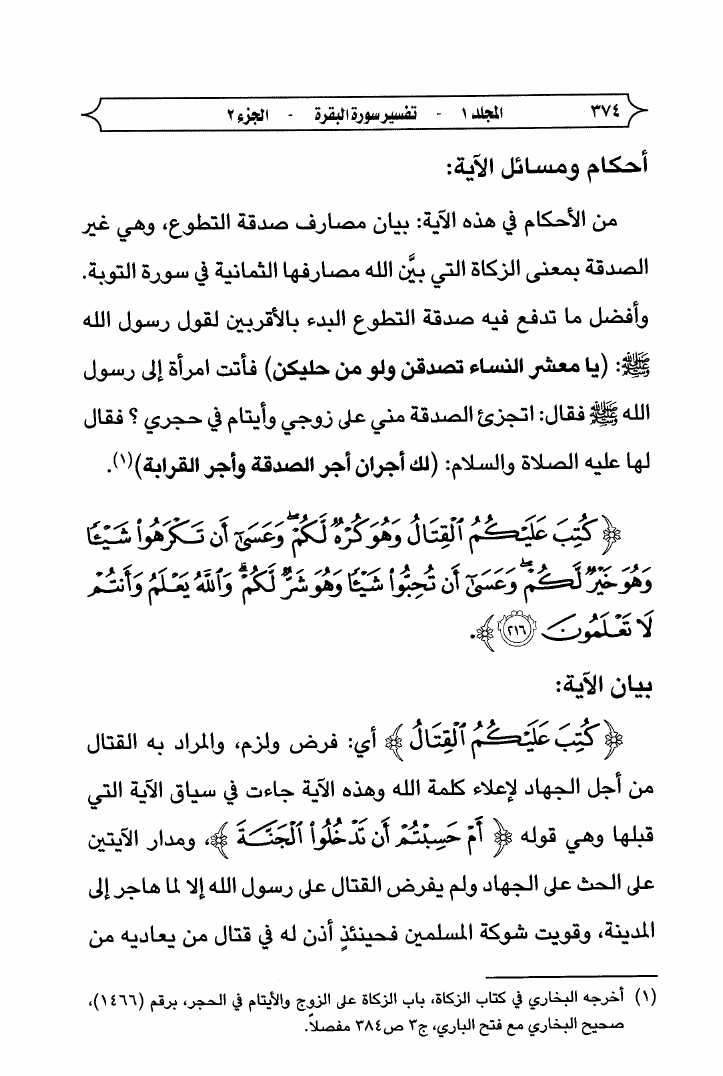 ٣٧٤ المجلد ١ - تفسير سورة البقرة - الجزء ٢
أحكام ومسائل الآية:
من الأحكام في هذه الآية: بيان مصارف صدقة التطوع، وهي غير
الصدقة بمعنى الزكاة التي بيَّن الله مصارفها الثمانية في سورة التوبة.
وأفضل ما تدفع فيه صدقة التطوع البدء بالأقربين لقول رسول الله
ﷺ: (يا معشر النساء تصدقن ولو من حليكن) فأتت امرأة إلى رسول
الله ﷺ فقال: اتجزئ الصدقة مني على زوجي وأيتام في حجري ؟ فقال
لها عليه الصلاة والسلام: (لك أجران أجر الصدقة وأجر القرابة)(١).
﴿ كُتِبَ عَلَيْكُمُ ٱلْقِتَالُ وَهُوَ كُرْهٌ لَّكُمْ ۖ وَعَسَىٰٓ أَن تَكْرَهُوا۟ شَيْـًٔا
وَهُوَ خَيْرٌ لَّكُمْ ۖ وَعَسَىٰٓ أَن تُحِبُّوا۟ شَيْـًٔا وَهُوَ شَرٌّ لَّكُمْ ۗ وَٱللَّهُ يَعْلَمُ وَأَنتُمْ
لَا تَعْلَمُونَ ٢١٦ ﴾.
بيان الآية:
﴿ كُتِبَ عَلَيْكُمُ ٱلْقِتَالُ ﴾ أي: فرض ولزم، والمراد به القتال
من أجل الجهاد لإعلاء كلمة الله وهذه الآية جاءت في سياق الآية التي
قبلها وهي قوله ﴿ أَمْ حَسِبْتُمْ أَن تَدْخُلُوا۟ ٱلْجَنَّةَ ﴾، ومدار الآيتين
على الحث على الجهاد ولم يفرض القتال على رسول الله إلا لما هاجر إلى
المدينة، وقويت شوكة المسلمين فحينئذٍ أذن له في قتال من يعاديه من
(١) أخرجه البخاري في كتاب الزكاة، باب الزكاة على الزوج والأيتام في الحجر، برقم (١٤٦٦)،
صحيح البخاري مع فتح الباري، ج٣ ص٣٨٤ مفصلاً.